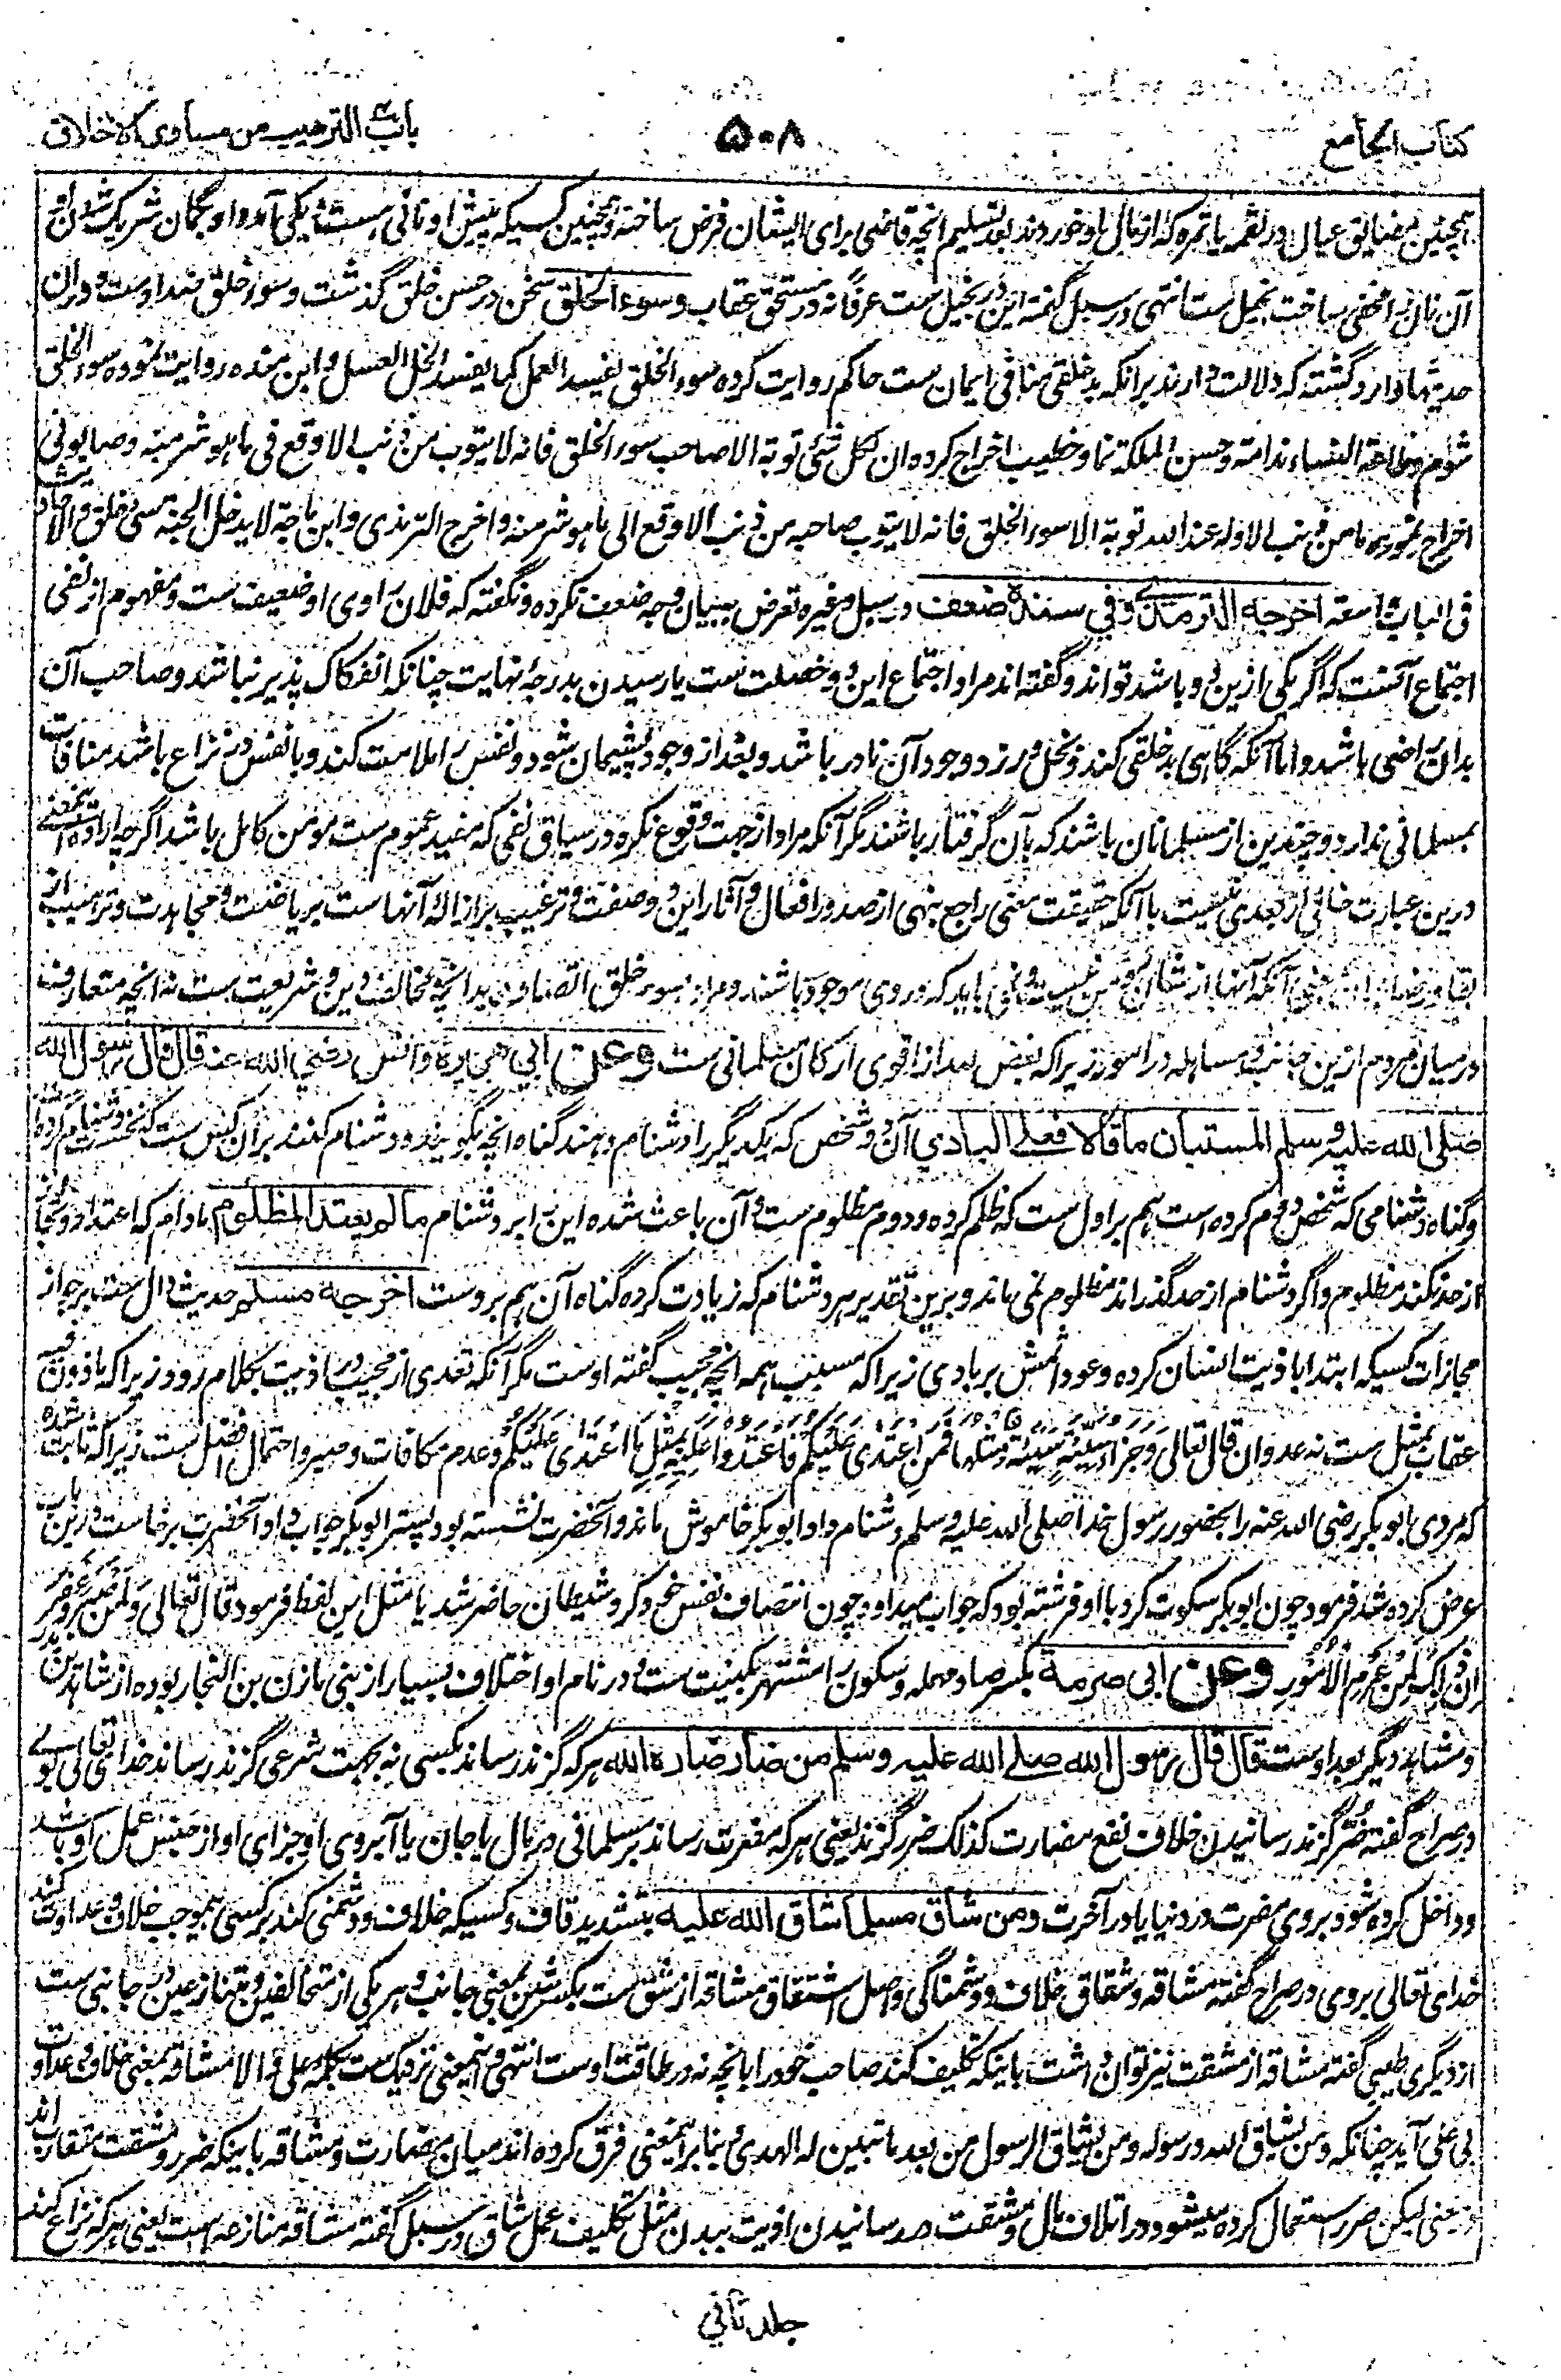 کتاب الجامع
۵۰۸
باب الترهيب من مساوی الاخلاق
همچنین مضایق عیال در لقمه یا تمره که از مال او خوردند بعد تسلیم انچه قاضی برای ایشان فرض ساخته و همچنین کسیکه پیش او نانی هست و یکی آمد و او بگمان شریک شدن او
آن نان را مخفی ساخت بخیل ست انتهی در سبل گفته این در بخیل ست عرفا نه در مستحق عقاب وسوء الخلق سخن در حسن خلق گذشت و سوء خلق ضد اوست و دران
حدیثها وارد گشته که دلالت دارند برانکه بدخلقی منافی ایمان ست حاکم روایت کرده سوء الخلق یفسد العمل کما یفسد الخل العسل و ابن منده روایت نموده سوء الخلق
شوم وطاعة النساء ندامة وحسن الملكة نماء وخطیب اخراج کرده ان لكل شئ توبة الا صاحب سوء الخلق فانه لا يتوب من ذنب الا وقع فى ما هو شر منه و صابونی
اخراج نموده ما من ذنب الا وله عند الله توبة الا سوء الخلق فانه لا يتوب صاحبه من ذنب الا وقع الى ما هو شر منه واخرج الترمذی وابن ماجة لا يدخل الجنة سئ خلق والاحادیث
فی الباب واسعة اخرجه الترمذی وفی سنده ضعف در سبل و غیره تعرض ببیان وجه ضعف نکرده و نگفته که فلان راوی او ضعیف ست و مفهوم از نفی
اجتماع آنست که اگر یکی ازین دو باشد تواند و گفته اند مراد اجتماع این دو خصلت ست یا رسیدن بدرجۀ نهایت چنانکه انفکاک پذیر نباشد و صاحب آن
بدان راضی باشد و اما آنکه گاهی بدخلقی کند و بخل ورزد و وجود آن نادر باشد و بعد از وجود پشیمان شود و نفس را ملامت کند و با نفس در نزاع باشد منافات
بمسلمانی ندارد و چندین از مسلمانان باشند که بآن گرفتار باشند مگر آنکه مراد از جهت وقوع نکره در سیاق نفی که مفید عموم ست مومن کامل باشد اگرچه اراده اینمعنی
درین عبارت خالی از بعدی نیست با آنکه حقیقت معنی راجع بنهی از صدور افعال و آثار این دو صفت و ترغیب بر ازالۀ آنهاست بریاضت و مجاهدت و ترهیب از
بقا و رضا آنکه آنها از شان مومن نیست و نمی باید که در وی موجود باشند و مراد بسوء خلق اتصاف بدانچه مخالف دین و شریعت ست نه انچه متعارف
در میان مردم ازین جانب و مساهله در امور زیرا که بغض لله از اقوی ارکان مسلمانی ست وعن ابی هریرة وانس رضی الله عنه قال قال رسول الله
صلى الله عليه وسلم المستبان ما قالا فعلى البادی آن دو شخص که یکدیگر را دشنام دهند گناه انچه بگویند و دشنام کنند بر آن کس ست که نخست دشنام کرده
و گناه دشنامی که شخص دوم کرده است هم بر اول ست که ظلم کرده و دوم مظلوم ست و آن باعث شده این را بر دشنام ما لم يعتد المظلوم مادام که اعتدا و تجاوز
از حد نکند مظلوم و اگر دشنام از حد گذراند مظلوم نمی ماند و برین تقدیر هر دشنام که زیادت کرده گناه آن هم بروست اخرجه مسلم حدیث دال ست بر جواز
مجازات کسیکه ابتدا باذیت انسان کرده و عود اثمش بر بادی زیرا که مسبب همه انچه مجیب گفته اوست مگر آنکه تعدی از مجیب در اذیت بکلام رود زیرا که ماذون فیه
عقاب بمثل ست نه عدوان قال تعالى وَجَزاءُ سَيِّئَةٍ سَيِّئَةٌ مِثْلُها فَمَنِ اعْتَدى عَلَيْكُمْ فَاعْتَدُوا عَلَيْهِ بِمِثْلِ مَا اعْتَدى عَلَيْكُمْ و عدم مکافات و صبر و احتمال افضل ست زیرا که ثابت شده
که مردی ابوبکر رضی الله عنه را بحضور رسول خدا صلی الله علیه وسلم دشنام داد ابوبکر خاموش ماند و آنحضرت نشسته بود پستر ابوبکر جواب داد و آنحضرت برخاست درین باب
عرض کرده شد فرمود چون ابوبکر سکوت کرد با او فرشته بود که جواب میداد و چون انتصاف نفس خود کرد شیطان حاضر شد یا مثل این لفظ فرمود قال تعالى وَلَمَنْ صَبَرَ وَغَفَرَ
إِنَّ ذلِكَ لَمِنْ عَزْمِ الْأُمُورِ وعن ابی صرمة بکسر صاد مهمله و سکون را مشتهر بکنیت ست و در نام او اختلاف بسیار از بنی مازن بن النجار بوده از شاهدین بدر
و مشاهد دیگر بعد اوست قال قال رسول الله صلى الله عليه وسلم من ضار ضاره الله هر که گزند رساند بکسی نه بجهت شرعی گزند رساند خدا تعالی بوی
در صراح گفته ضر گزند رسانیدن خلاف نفع مضارت کذلک ضرر گزند یعنی هر که مضرت رساند بر مسلمانی در مال یا جان یا آبروی او جزای او از جنس عمل او باشد
و داخل کرده شود بر وی مضرت در دنیا یا در آخرت ومن شاق مسلما شاق الله عليه بتشدید قاف و کسیکه خلاف و دشمنی کند بر کسی بیموجب خلاف و عداوت کند
خدای تعالی بروی در صراح گفته مشاقه و شقاق خلاف و دشمناگی و اصل اشتقاق مشاقه از شق ست بکسر شین بمعنی جانب و هر یکی از متخالفین و متنازعین در جانبی ست
از دیگری طیبی گفته مشاقه از مشقت نیز توان داشت باینکه تکلیف کند صاحب خود را بانچه نه در طاقت اوست انتهی و اینمعنی نزدیک ست بکلمه علی والا مشاقه بمعنی خلاف و عداوت
بی علی آید چنانکه ومن يشاق الله ورسوله ومن يشاقق الرسول من بعد ما تبين له الهدى و بنا بر اینمعنی فرق کرده اند میان مضارت و مشاقه باینکه ضرر و مشقت متقارب اند
در معنی لیکن ضرر استعمال کرده میشود در اتلاف مال و مشقت در رسانیدن اذیت ببدن مثل تکلیف عمل شاق در سبل گفته مشاقه منازعه است یعنی هر که نزاع کند
جلد ثانی